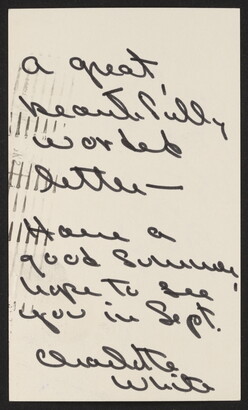 a great,
beautifully
worded
letter—
Have a
good summer,
hope to see
you in Sept.
Charlotte
White